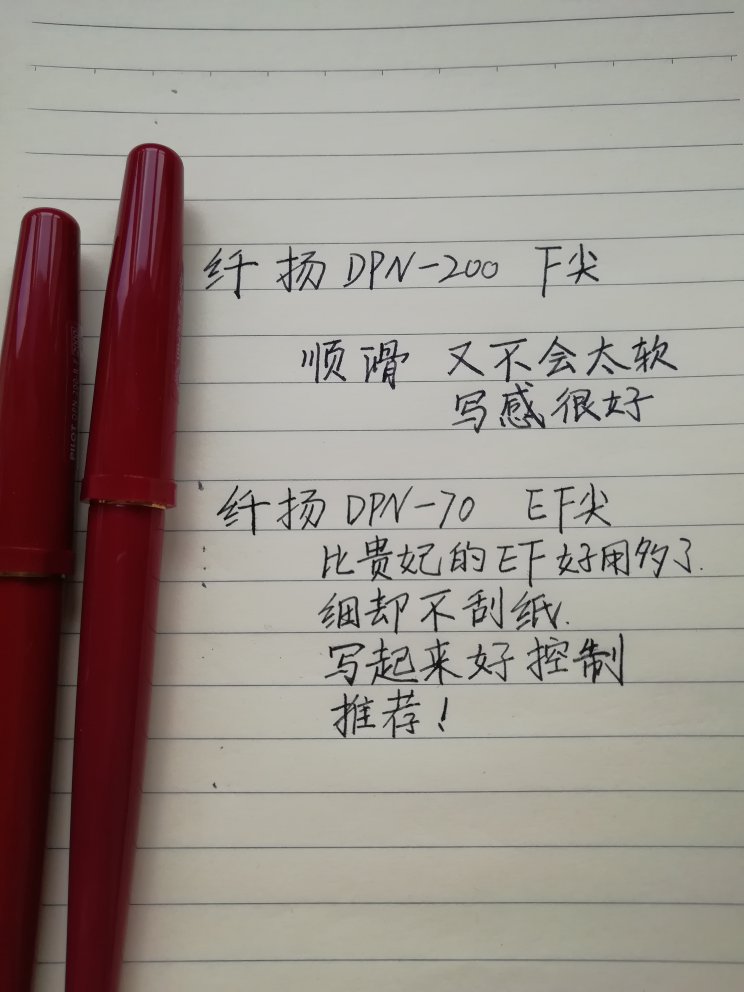 纤扬 DPN-200 F尖
顺滑 又不会太软
写感很好
纤扬 DPN-70 EF尖
比贵妃的EF好用多了.
细却不刮纸.
写起来好控制
推荐!
PILOT